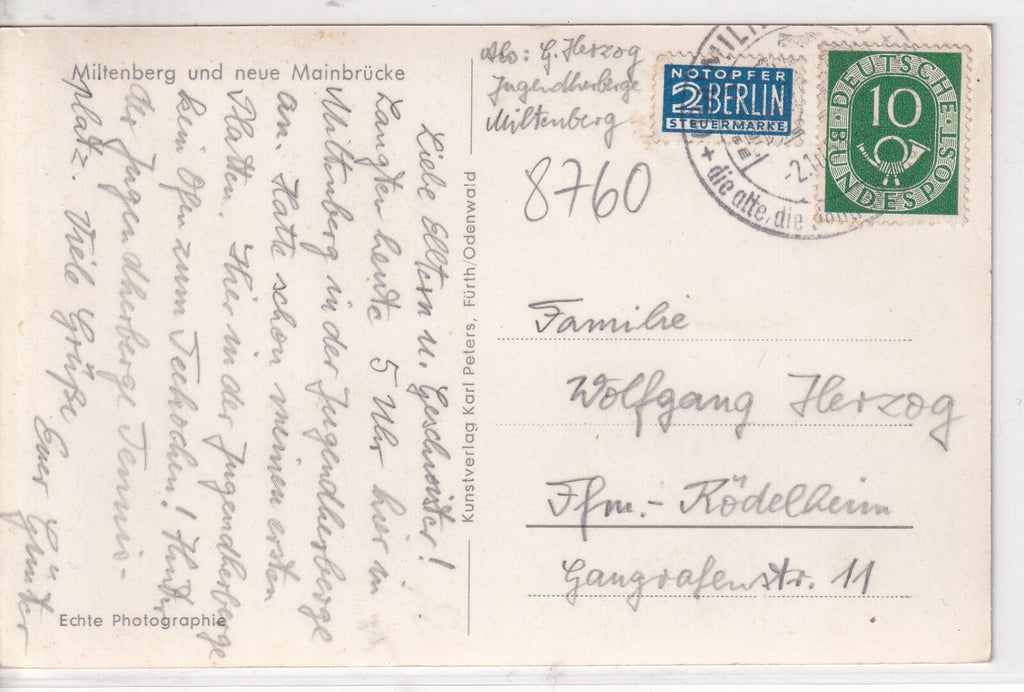 Miltenberg und neue Mainbrücke
Abs: G. Herzog
Jugendherberge
Miltenberg
8760
NOTOPFER
2 BERLIN
STEUERMARKE
DEUTSCHE
10
BUNDESPOST
MIL
-2.10
+ die alte, die
Liebe Eltern u. Geschwister!
Langten heute 5 Uhr hier in
Miltenberg in der Jugendherberge
an. Hatte schon meinen ersten
Platten. Hier in der Jugendherberge
kein Ofen zum Teekochen! Hinter
der Jugendherberge Tennis-
platz. Viele Grüße
Euer Günter
Kunstverlag Karl Peters, Fürth/Odenwald
Familie
Wolfgang Herzog
Ffm.- Rödelheim
Gaugrafenstr. 11
Echte Photographie